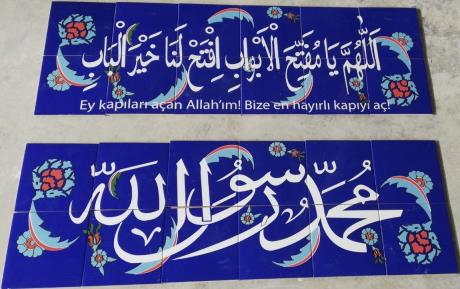 اَللّٰهُمَّ يَا مُفَتِّحَ الْاَبْوَابِ اِفْتَحْ لَنَا خَيْرَ الْبَابِ
Ey kapıları açan Allah'ım! Bize en hayırlı kapıyı aç!
مُحَمَّدٌ رَسُولُ اللّٰه